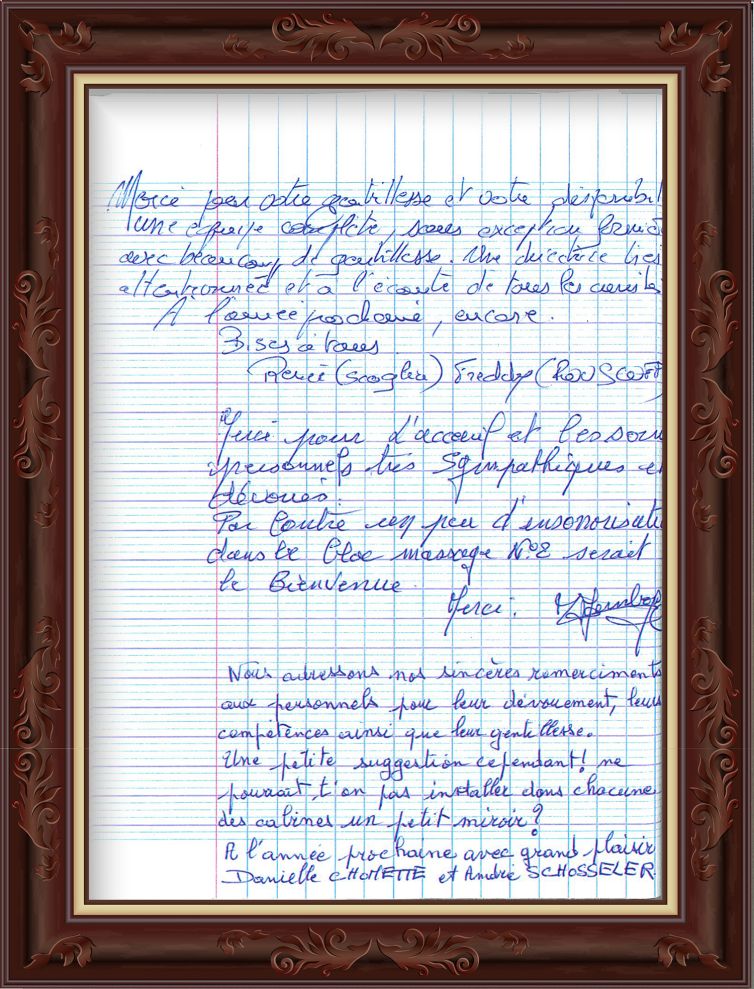 Merci pour votre gentillesse et votre disponibil
une équipe complète, sans exception fermé
avec beaucoup de gentillesse. Une directrice très
attentionnée et à l'écoute de tous les curistes
A l'année prochaine, encore.
Bises à tous
Renée (Scoglia) Freddy (ROUSCOFF)
Merci pour l'acceuil et les soin
personnels très Sympathiques et
dévoués.
Par Contre un peu d'insonorisati
dans le Bloc massage N°2 serait
le Bienvenue.
Merci.
Nous adressons nos sincères remerciments
aux personnels pour leur dévouement, leurs
compétences ainsi que leur gentillesse.
Une petite suggestion cependant! ne
pourrait t'on pas installer dans chacune
des cabines un petit miroir?
A l'année prochaine avec grand plaisir
Danielle CHOMETTE et André SCHOSSELER.